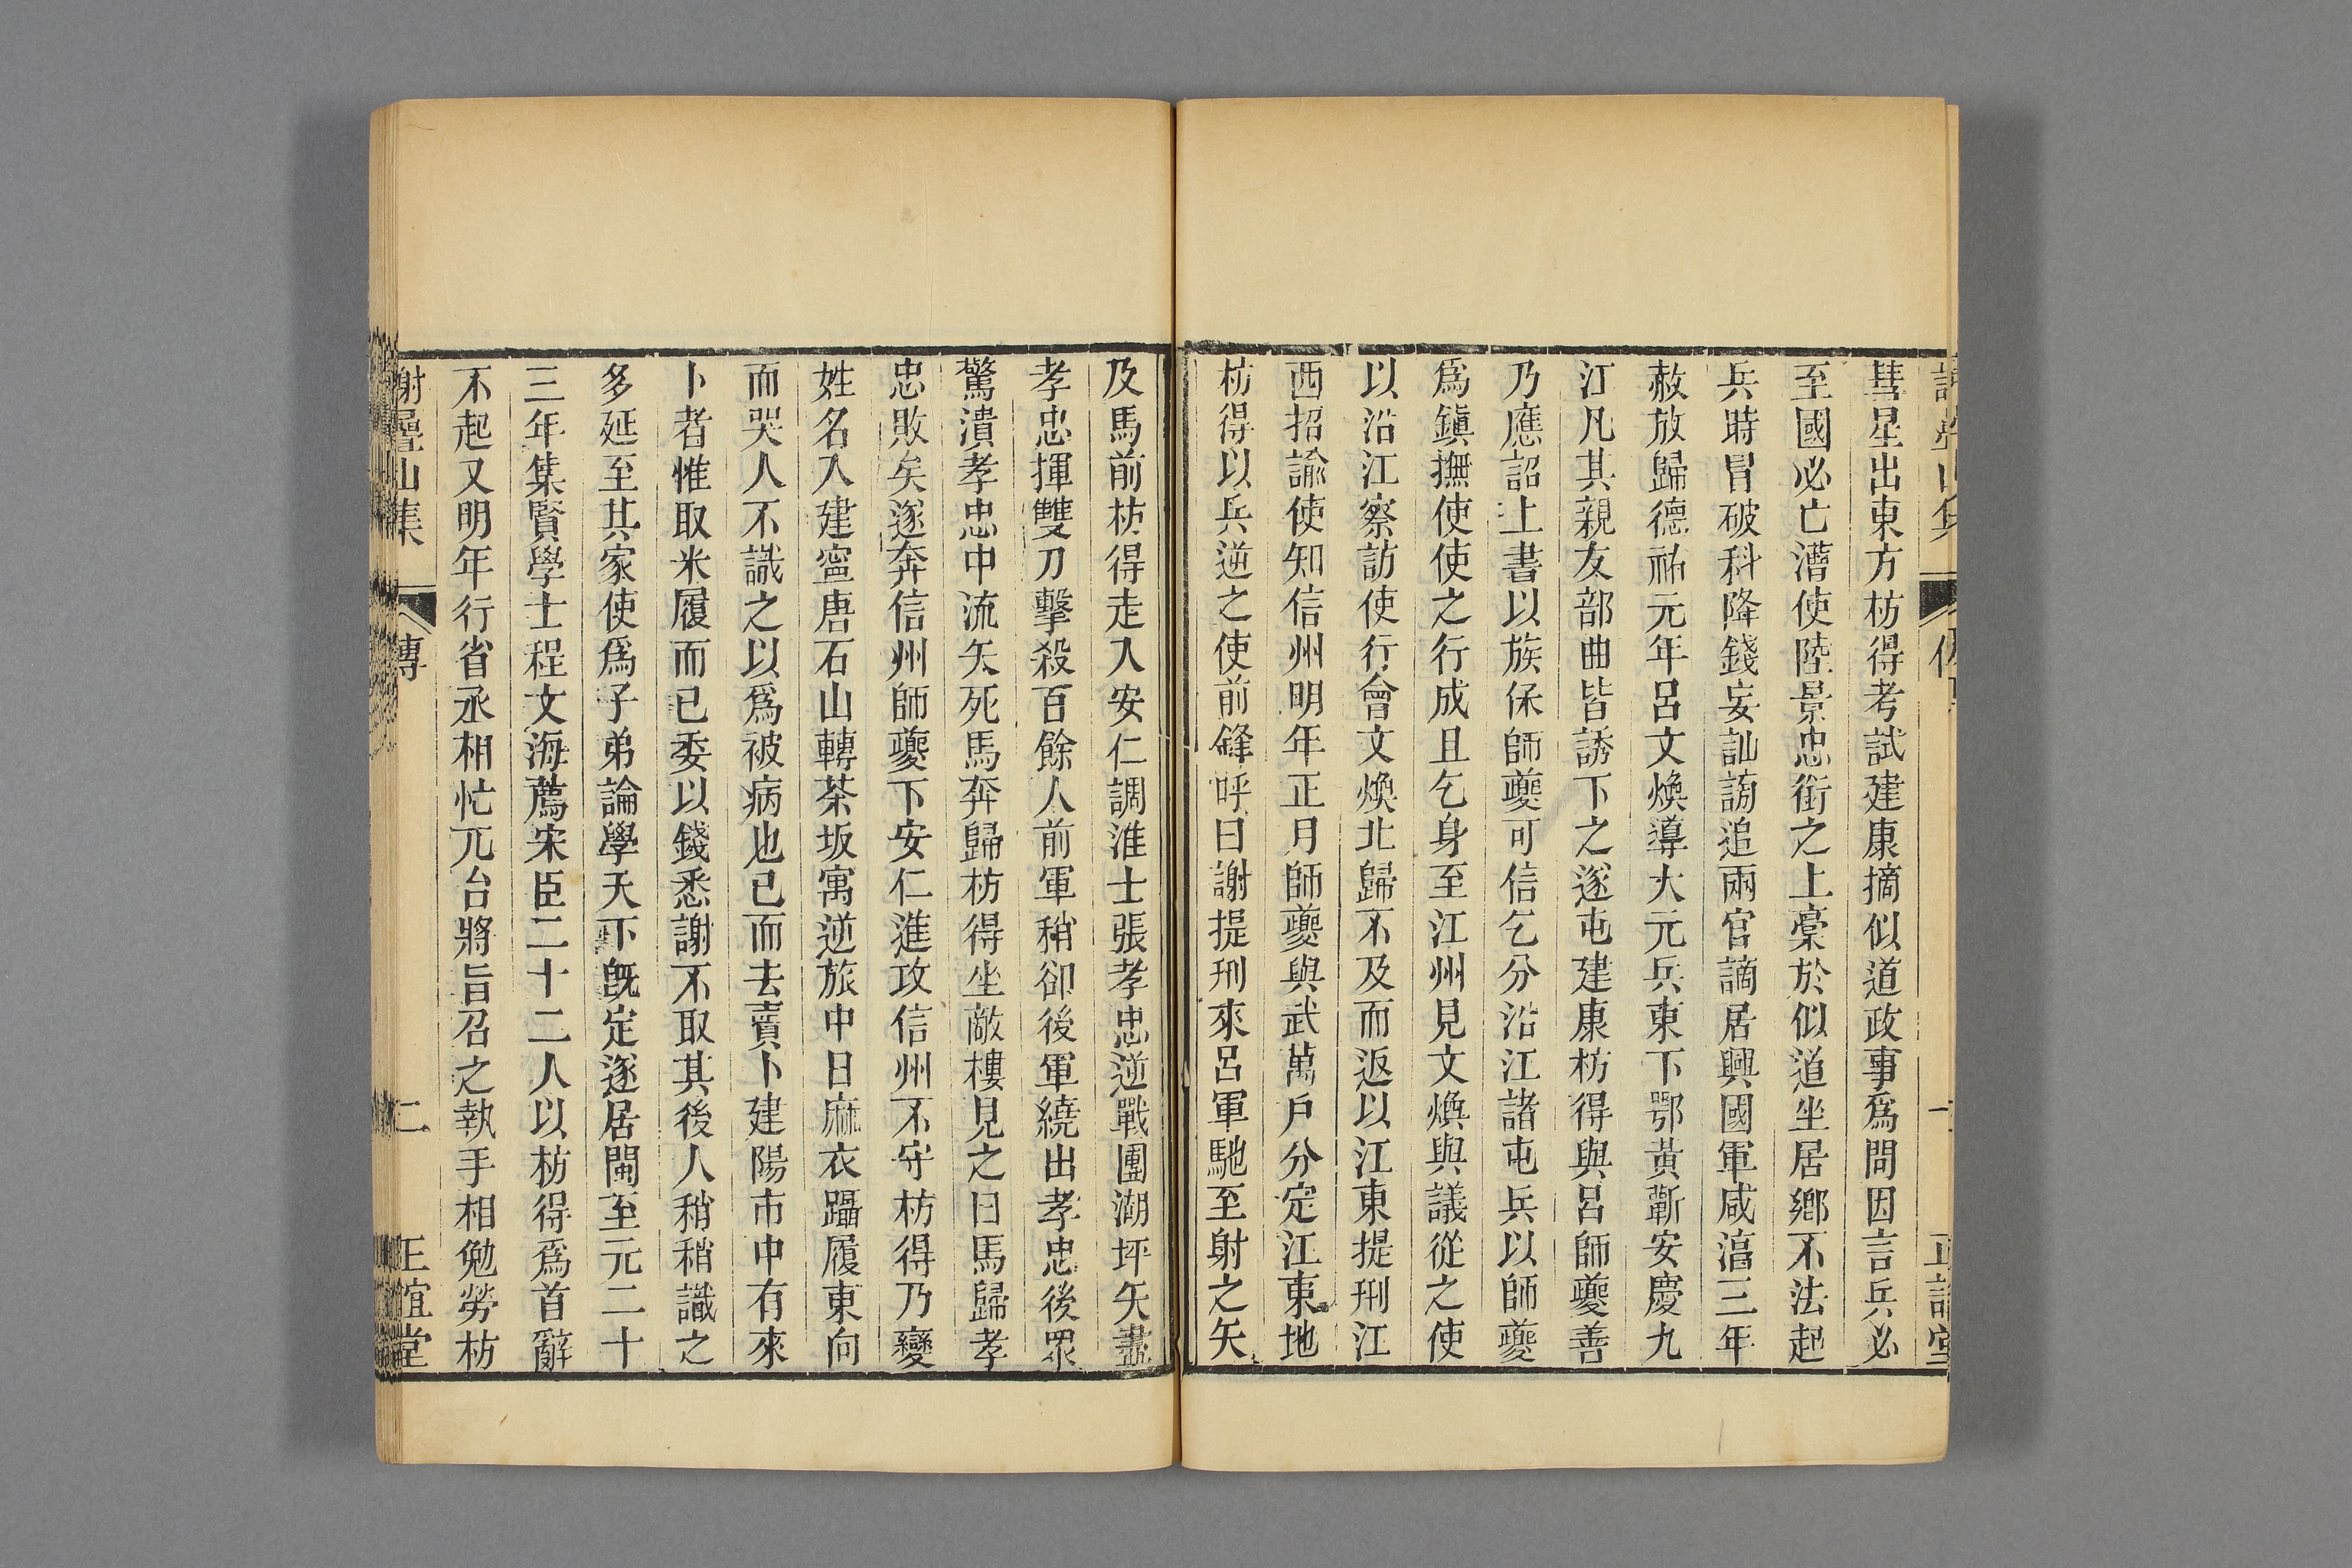 彗星出東方枋得考試建康摘似道政事爲問因言兵必
至國必亡漕使陸景忠銜之上稾於似道坐居鄉不法起
兵時冒破科降錢妄訕謗追兩官謫居興國軍咸淳三年
赦放歸德祐元年呂文煥導大元兵東下鄂黃蘄安慶九
江凡其親友部曲皆誘下之遂屯建康枋得與呂師夔善
乃應詔上書以族保師夔可信乞分沿江諸屯兵以師夔
爲鎭撫使使之行成且乞身至江州見文煥與議從之使
以沿江察訪使行會文煥北歸不及而返以江東提刑江
西招諭使知信州明年正月師夔與武萬戶分定江東地
枋得以兵逆之使前鋒呼曰謝提刑來呂軍馳至射之矢
及馬前枋得走入安仁調淮士張孝忠逆戰團湖坪矢盡
孝忠揮雙刀擊殺百餘人前軍稍卻後軍繞出孝忠後眾
驚潰孝忠中流矢死馬奔歸枋得坐敵樓見之曰馬歸孝
忠敗矣遂奔信州師夔下安仁進攻信州不守枋得乃變
姓名入建寧唐石山轉茶坂寓逆旅中日麻衣躡履東向
而哭人不識之以爲被病也已而去賣卜建陽市中有來
卜者惟取米履而已委以錢悉謝不取其後人稍稍識之
多延至其家使爲子弟論學天下旣定遂居閩至元二十
三年集賢學士程文海薦宋臣二十二人以枋得爲首辭
不起又明年行省丞相忙兀台將旨召之執手相勉勞枋
謝疊山集 傳 二 正誼堂